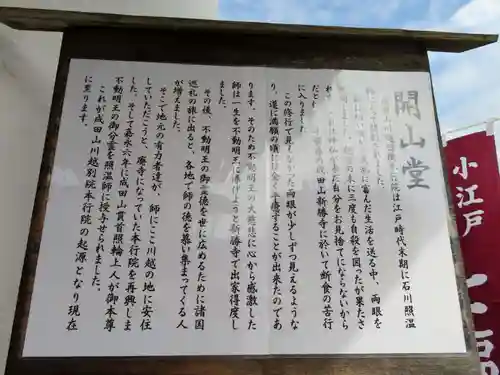 開山堂
院は江戸時代末期に石川照温
に富んだ生活を送る中、両眼を
に三度も自殺を図ったが果たさ
た自分をお見捨てにならないから
だと
成田山新勝寺に於いて断食の苦行
に入りました。
この修行で見えなかった両眼が少しずつ見えるような
り、遂に満願の頃には全く平癒することが出来たのであ
ります。そのため不動明王の大慈悲に心から感激した
師は一生を不動明王に捧げようと新勝寺で出家得度し
ました。
その後、不動明王の御霊徳を世に広めるために諸国
巡礼の旅に出ると、各地で師の徳を慕い集まってくる人
が増えました。
そこで地元の有力者達が、師にここ川越の地に安住
していただこうと、廃寺になっていた本行院を再興しま
した。そして嘉永六年に成田山貫首照輪上人が御本尊
不動明王の御分霊を照温師に授与せられました。
これが成田山川越別院本行院の起源となり現在
に至ります。
小江戸